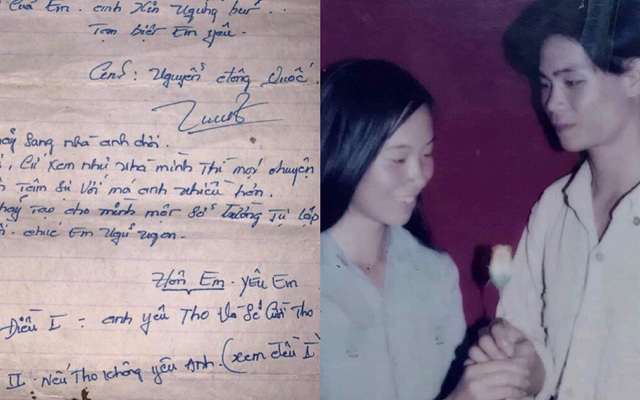 của Em. anh Xin Ngừng bút
Tạm biệt Em yêu.
Anh: Nguyễn đông Quốc.
sang nhà anh chơi.
, Cứ xem như nhà mình thì mọi chuyện
Tâm Sự với má anh nhiều hơn.
hãy Tạo cho mình một Sở Trường Tự lập
. chúc Em Ngủ Ngon.
Hôn Em. yêu Em
Điều I : anh yêu Tho Và Sẽ Cưới Tho
II. Nếu Tho không yêu Anh. (xem điều I)